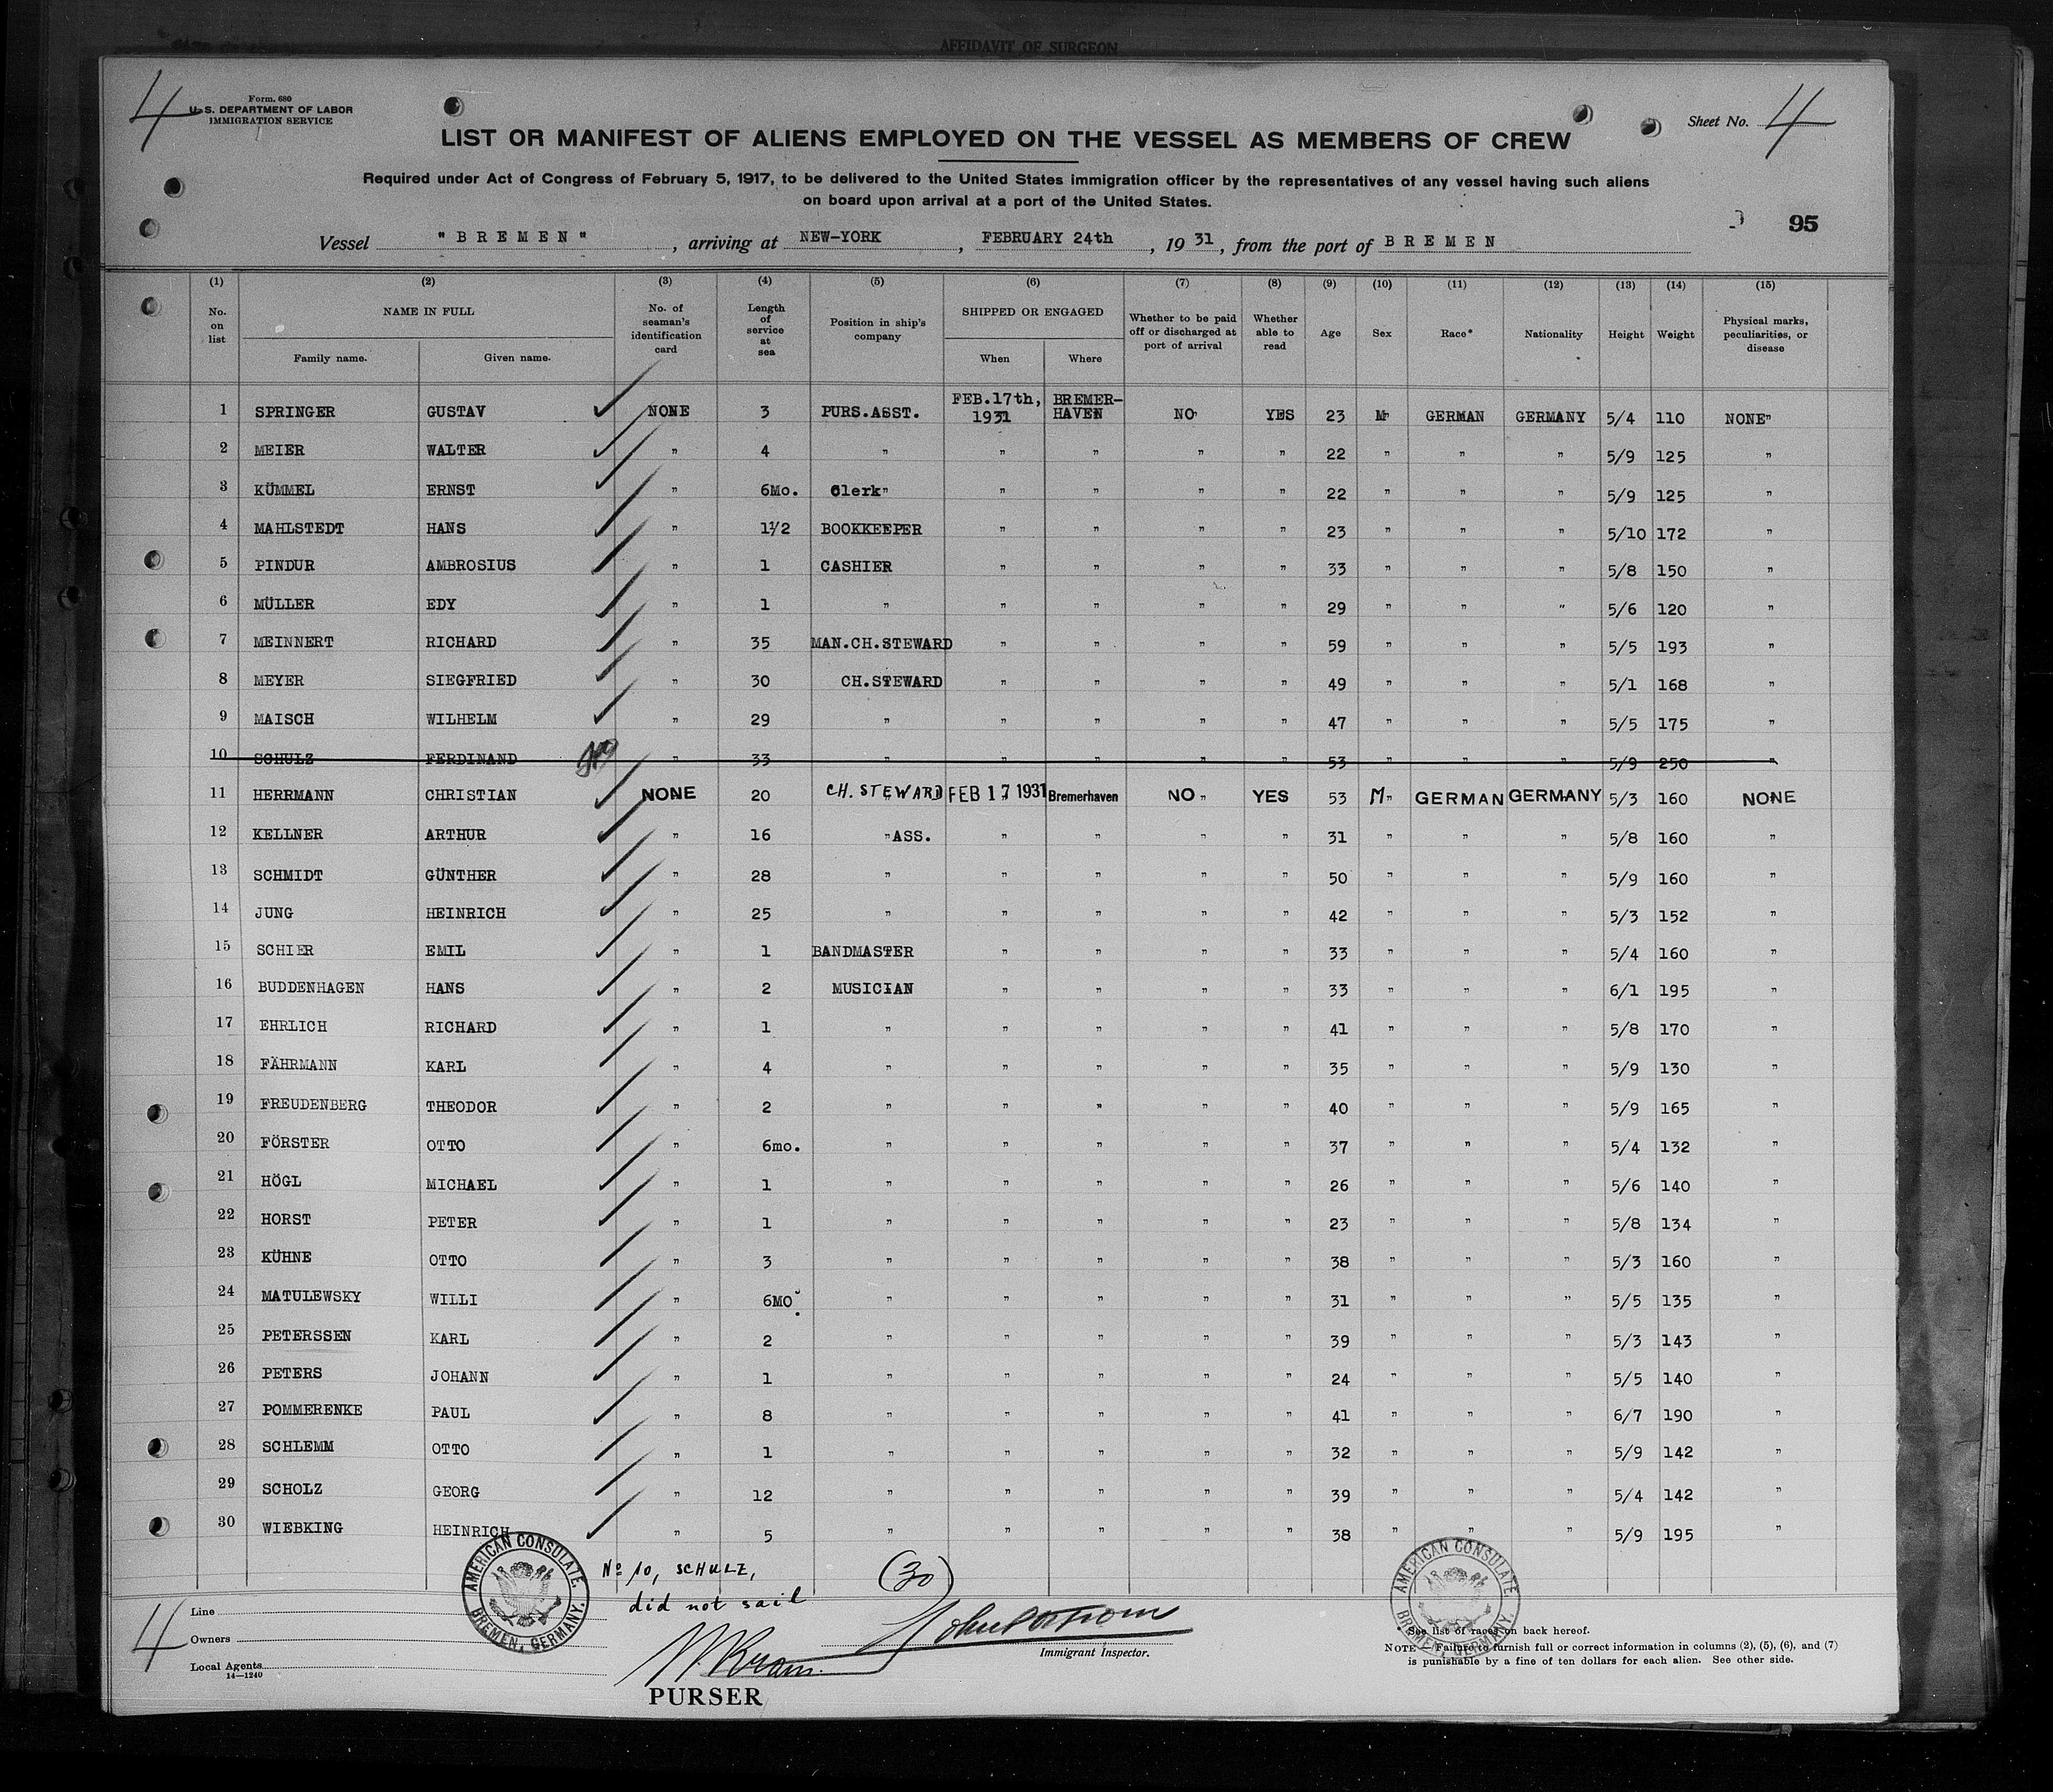 AFFIDAVIT OF SURGEON
4
Form. 680
U. S. DEPARTMENT OF LABOR
IMMIGRATION SERVICE
Sheet No. 4
LIST OR MANIFEST OF ALIENS EMPLOYED ON THE VESSEL AS MEMBERS OF CREW
Required under Act of Congress of February 5, 1917, to be delivered to the United States immigration officer by the representatives of any vessel having such aliens
on board upon arrival at a port of the United States.
95
Vessel "BREMEN", arriving at NEW-YORK, FEBRUARY 24th, 1931, from the port of BREMEN
(1) (2) (3) (4) (5) (6) (7) (8) (9) (10) (11) (12) (13) (14) (15)
No. on list NAME IN FULL Family name. Given name. No. of seaman's identification card Length of service at sea Position in ship's company SHIPPED OR ENGAGED When Where Whether to be paid off or discharged at port of arrival Whether able to read Age Sex Race* Nationality Height Weight Physical marks, peculiarities, or disease
1 SPRINGER GUSTAV NONE 3 PURS.ASST. FEB.17th, 1931 BREMER-HAVEN NO YES 23 M GERMAN GERMANY 5/4 110 NONE"
2 MEIER WALTER " 4 " " " " " 22 " " " 5/9 125 "
3 KÜMMEL ERNST " 6Mo. Clerk" " " " " 22 " " " 5/9 125 "
4 MAHLSTEDT HANS " 1½ BOOKKEEPER " " " " 23 " " " 5/10 172 "
5 PINDUR AMBROSIUS " 1 CASHIER " " " " 33 " " " 5/8 150 "
6 MÜLLER EDY " 1 " " " " " 29 " " " 5/6 120 "
7 MEINNERT RICHARD " 35 MAN.CH.STEWARD " " " " 59 " " " 5/5 193 "
8 MEYER SIEGFRIED " 30 CH.STEWARD " " " " 49 " " " 5/1 168 "
9 MAISCH WILHELM " 29 " " " " " 47 " " " 5/5 175 "
10 SCHULZ FERDINAND " 33 " " " " " 53 " " " 5/9 250 "
11 HERRMANN CHRISTIAN NONE 20 CH. STEWARD FEB 17 1931 Bremerhaven NO " YES 53 M" GERMAN GERMANY 5/3 160 NONE
12 KELLNER ARTHUR " 16 "ASS. " " " " 31 " " " 5/8 160 "
13 SCHMIDT GÜNTHER " 28 " " " " " 50 " " " 5/9 160 "
14 JUNG HEINRICH " 25 " " " " " 42 " " " 5/3 152 "
15 SCHIER EMIL " 1 BANDMASTER " " " " 33 " " " 5/4 160 "
16 BUDDENHAGEN HANS " 2 MUSICIAN " " " " 33 " " " 6/1 195 "
17 EHRLICH RICHARD " 1 " " " " " 41 " " " 5/8 170 "
18 FÄHRMANN KARL " 4 " " " " " 35 " " " 5/9 130 "
19 FREUDENBERG THEODOR " 2 " " " " " 40 " " " 5/9 165 "
20 FÖRSTER OTTO " 6mo. " " " " " 37 " " " 5/4 132 "
21 HÖGL MICHAEL " 1 " " " " " 26 " " " 5/6 140 "
22 HORST PETER " 1 " " " " " 23 " " " 5/8 134 "
23 KÜHNE OTTO " 3 " " " " " 38 " " " 5/3 160 "
24 MATULEWSKY WILLI " 6MO. " " " " " 31 " " " 5/5 135 "
25 PETERSSEN KARL " 2 " " " " " 39 " " " 5/3 143 "
26 PETERS JOHANN " 1 " " " " " 24 " " " 5/5 140 "
27 POMMERENKE PAUL " 8 " " " " " 41 " " " 6/7 190 "
28 SCHLEMM OTTO " 1 " " " " " 32 " " " 5/9 142 "
29 SCHOLZ GEORG " 12 " " " " " 39 " " " 5/4 142 "
30 WIEBKING HEINRICH " 5 " " " " " 38 " " " 5/9 195 "
AMERICAN CONSULATE, BREMEN, GERMANY.
No 10, SCHULZ,
did not sail
(30)
AMERICAN CONSULATE BREMEN, GERMANY.
4
Line
Owners
Local Agents
14—1240
PURSER
Immigrant Inspector.
See list of races on back hereof.
NOTE.—Failure to furnish full or correct information in columns (2), (5), (6), and (7)
is punishable by a fine of ten dollars for each alien. See other side.